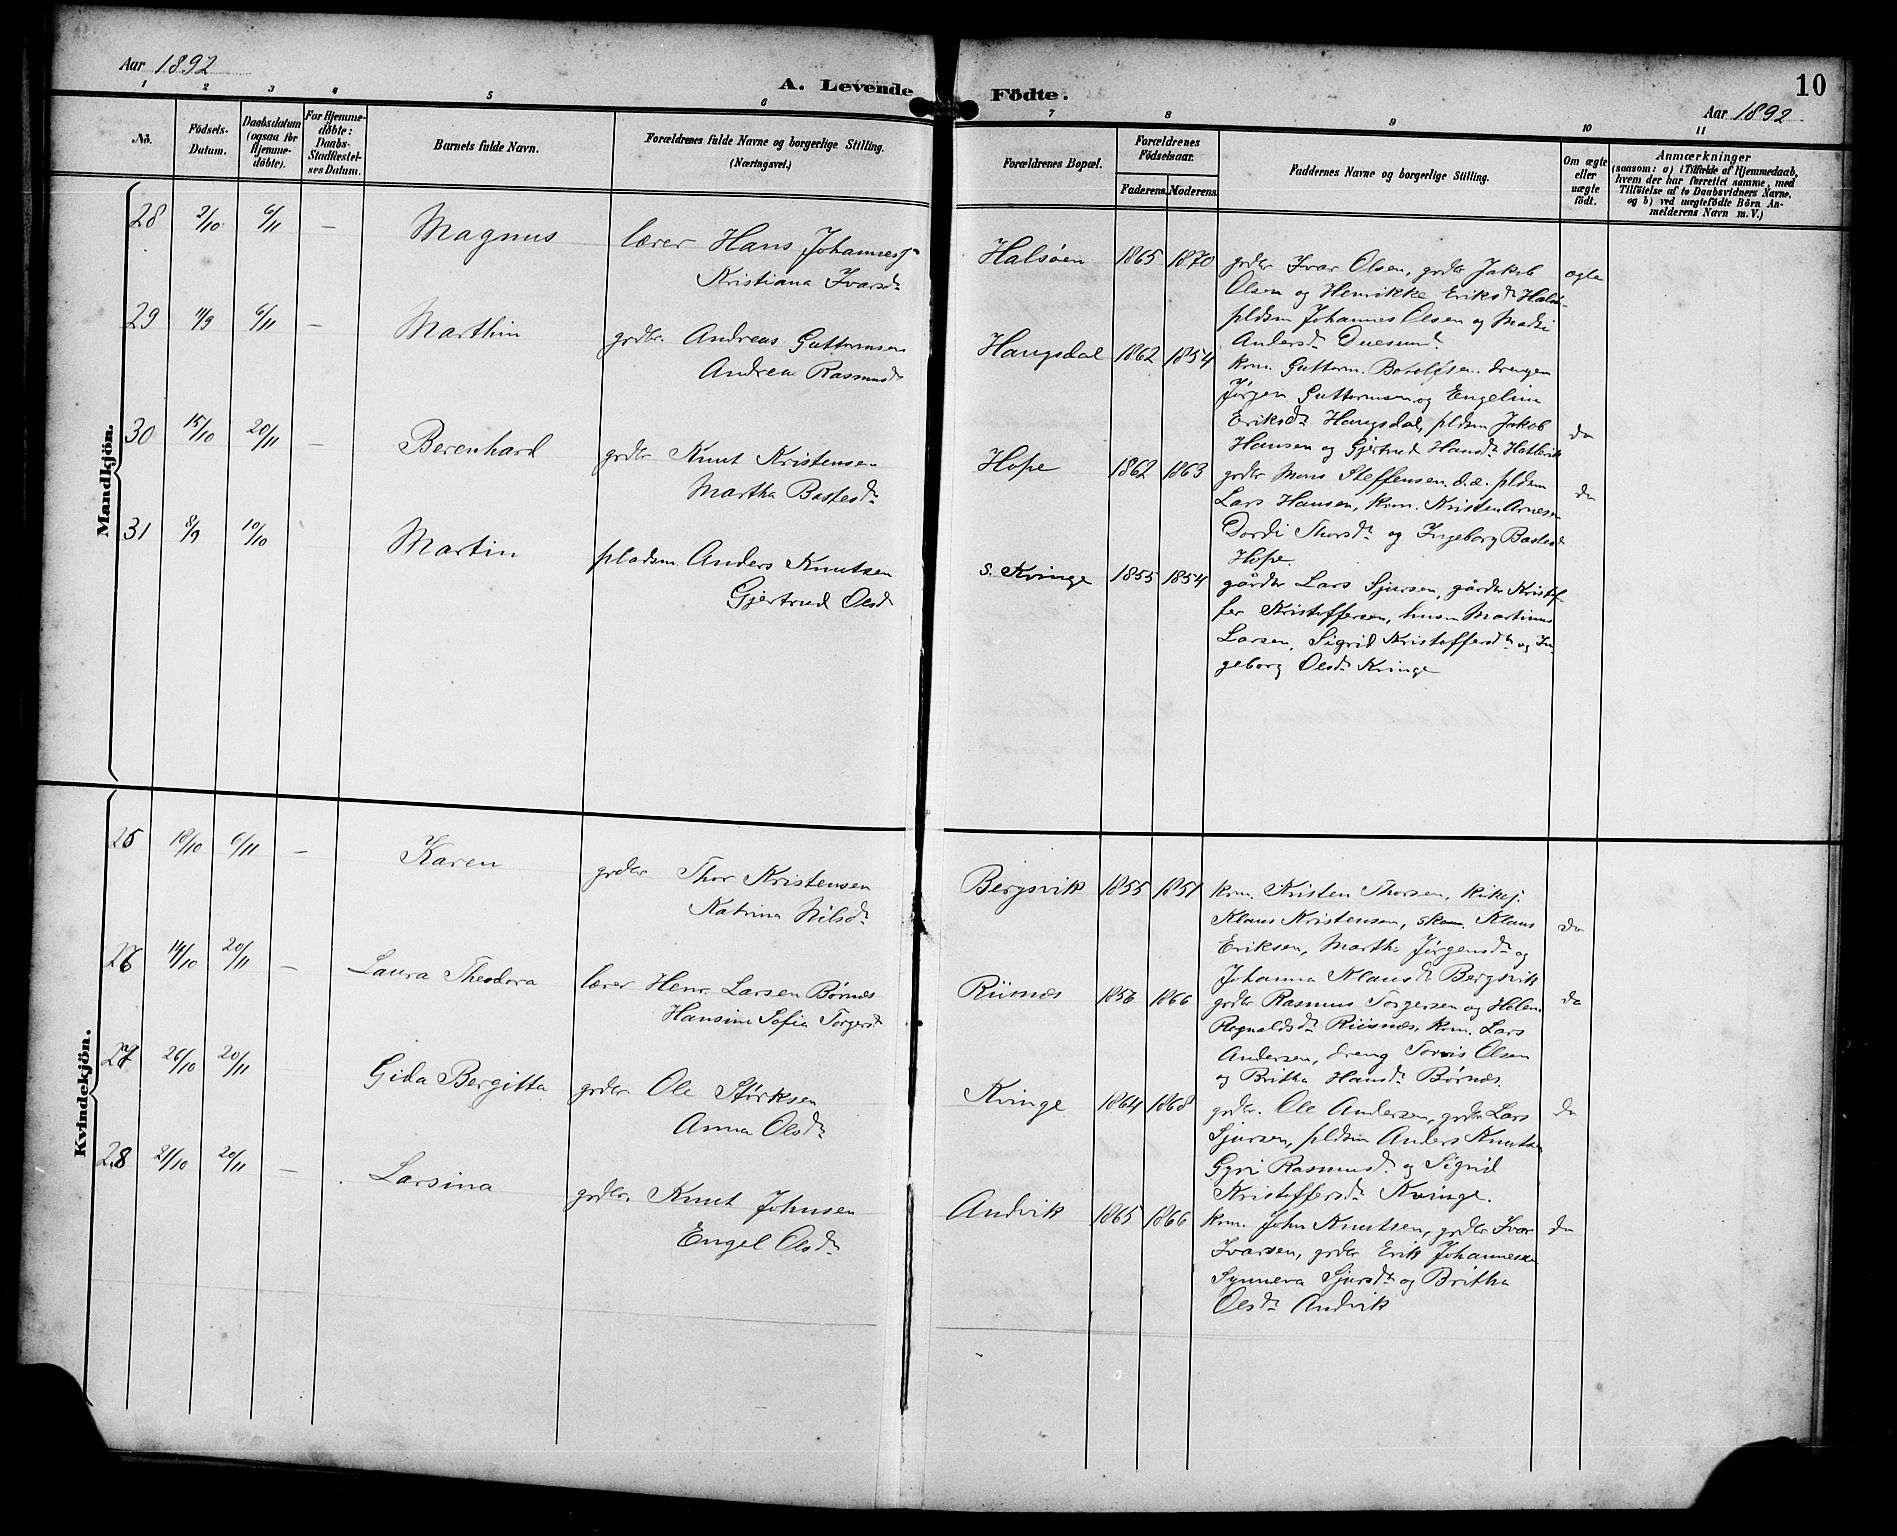 Aar 1892
A. Levende Födte.
10
Aar 1892
1 2 3 4 5 6 7 8 9 10 11
No.
Födsels-Datum.
Daabsdatum (ogsaa for Hjemme-döbte).
For Hjemme-döbte: Daabs-Stadfæstel-ses Datum.
Barnets fulde Navn.
Forældrenes fulde Navne og borgerlige Stilling.
(Næringsvei.)
Forældrenes Bopæl.
Forældrenes Födselsaar.
Faderens. Moderens.
Faddernes Navne og borgerlige Stilling.
Om ægte eller uægte födt.
Anmærkninger
(saasom: a) i Tilfælde af Hjemmedaab,
hvem der har forrettet samme, med
Tilföielse af to Daabsvidners Navne.
og b) ved uægtefödte Börn An-
melderens Navn m. V.)
Mandkjön.
28 2/10 6/11 — Magnus
lærer Hans Johannesen
Kristiana Ivarsdr
Halsøen 1865 1870
grdbr Ivar Olsen, grdbr Jakob
Olsen og Henrikke Eriksdr
pldsm Johannes Olsen og
Andersdr Duesund
ægte
29 11/9 6/11 — Marthin
grdbr. Andreas Guttormsen
Andrea Rasmusdr
Haugsdal 1862 1854
kvm. Guttorm. drengen
Jørgen Guttormsen og Engelina
Eriksdr Haugsdal, pldsm Jakob
Hansen og Gjertrud Hansdr
do
30 15/10 20/11 — Berenhard
grdbr Knut Kristensen
Martha Bastesdr
Hope 1862 1863
grdbr Mons Steffensen. d.e. pldsm
Lars Hansen, kvm. Kristen Arnesen
Dordi Thorsdr og Ingeborg Bastesdr
Hope.
do
31 8/9 10/10 Martin
pladsm. Anders Knutsen
Gjertrud Olsd
S. Kvinge 1855 1854
gårdbr Lars Sjursen, gårdbr Kristof-
fer Kristoffersen, husm Martinus
Larsen, Sigrid Kristoffersdr og In-
geborg Olsdr Kvinge
Kvindekjön.
25 18/10 6/11 — Karen
grdbr Thor Kristensen
Katrina Nilsdr
Bergsvik 1855 1851
kvm. Kristen Thorsen,
Klaus Kristensen, Klaus
Eriksen, Martha Jørgensdr og
Johanna Klausdr Bergsvik
do
26 14/10 20/11 — Laura Theodora
lærer Henr. Larsen Børnæs
Hansine Sofia Torgersd
Riisnæs 1856 1866
grdbr Rasmus Torgersen og Helene
Rognaldsdr Riisnæs, kvm. Lars
Andersen, dreng Olsen
og Britha Hansdr Børnæs.
do
27 26/10 20/11 Gida Bergitta
grdbr. Ole Størksen
Anna Olsdr
Kvinge 1864 1868
grdbr. Ole Andersen, grdbr Lars
Sjursen, pldsm Anders Knutsen
Gyri Rasmusdr og Sigrid
Kristoffersdr Kvinge.
do
28 21/10 20/11 — Larsina
grdbr. Knut Johnsen
Engel Olsdr
Andvik 1865 1866
kvm. John Knutsen, grdbr Ivar
Ivarsen, grdbr Erik Johannesen
Synneva Sjursdr og Britha
Olsdr Andvik
do